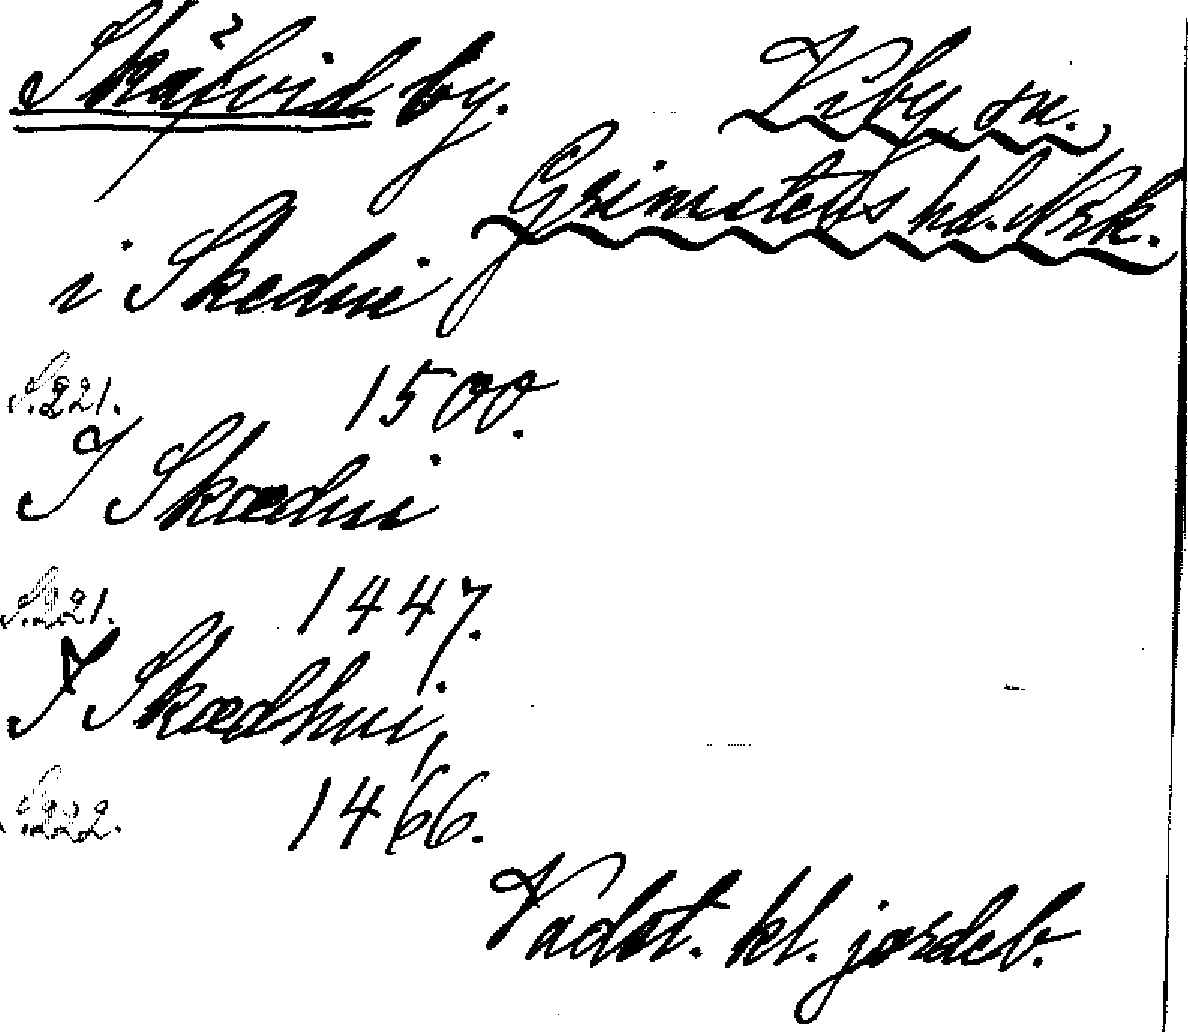 Skåvid by.
Viby sn.
Grimstens hd. Nrk.
i Skedui
S. 221. 1500.
I Skædui
S. 221. 1447.
I Skædhui,
S. 222. 1466.
Vadst. kl. jordeb.